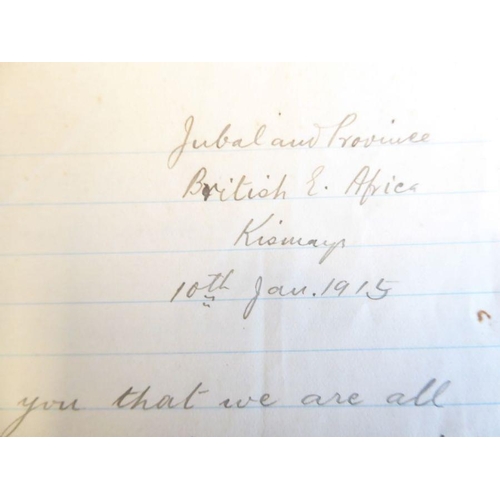 Jubaland Province
British E. Africa
Kismayu
10th Jan. 1915
you that we are all